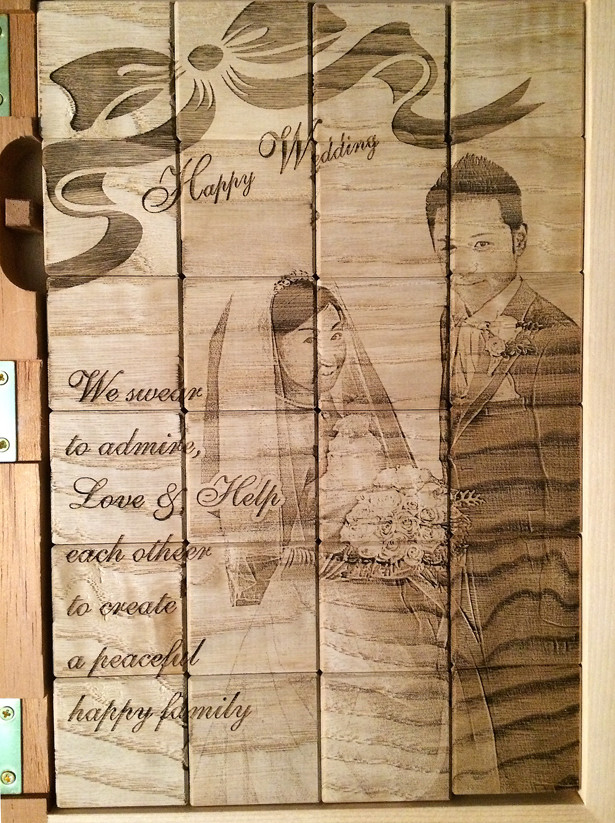 Happy Wedding
We swear
to admire,
Love & Help
each otheer
to create
a peaceful
happy family